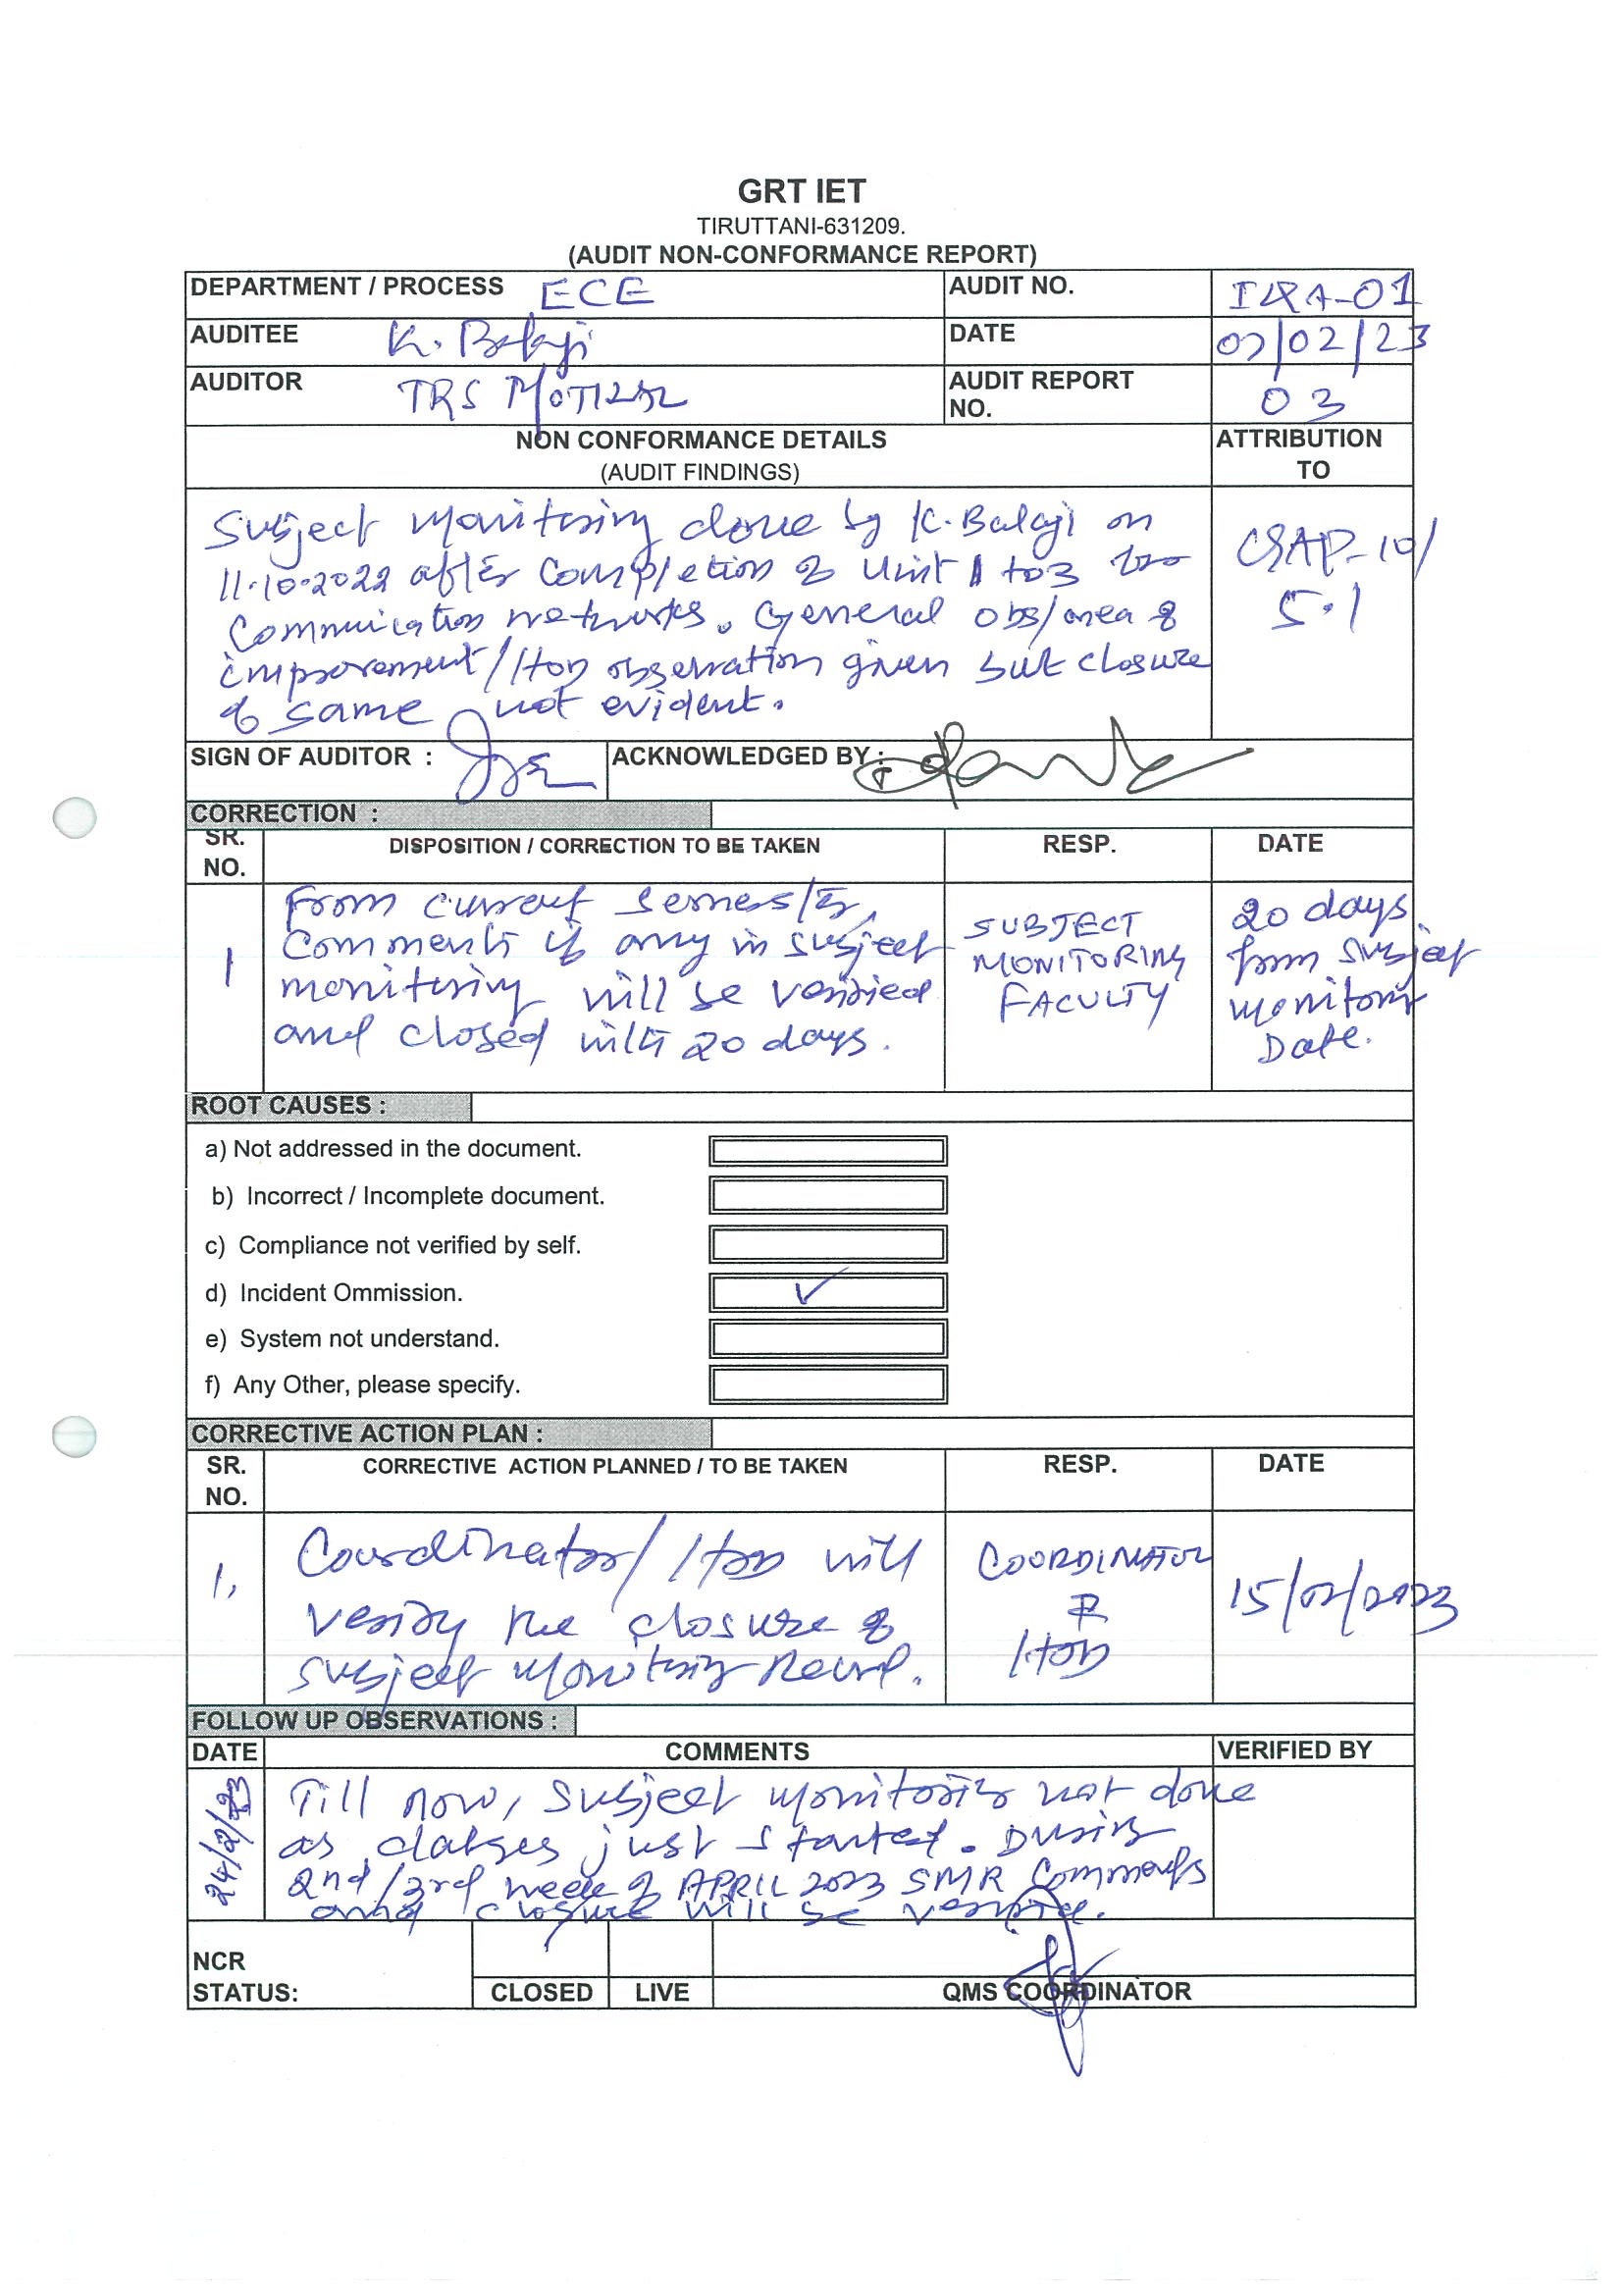 GRT IET
TIRUTTANI-631209.
(AUDIT NON-CONFORMANCE REPORT)
DEPARTMENT / PROCESS ECE AUDIT NO. IQA-01
AUDITEE K. Balaji DATE 07/02/23
AUDITOR TRS AUDIT REPORT NO. 03
NON CONFORMANCE DETAILS
(AUDIT FINDINGS)
ATTRIBUTION
TO
Subject monitoring done by K. Balaji on
11.10.2022 after completion of Unit 1 to 3
Communication networks. General obs/area of
improvement/HOD observation given but closure
of same not evident.
5.1
SIGN OF AUDITOR : ACKNOWLEDGED BY :
CORRECTION :
SR.
NO.
DISPOSITION / CORRECTION TO BE TAKEN RESP. DATE
1
From current semester,
Comments if any in subject
monitoring will be verified
and closed with 20 days.
SUBJECT
MONITORING
FACULTY
20 days
from subject
monitoring
Date.
ROOT CAUSES :
a) Not addressed in the document.
b) Incorrect / Incomplete document.
c) Compliance not verified by self.
d) Incident Ommission. ✓
e) System not understand.
f) Any Other, please specify.
CORRECTIVE ACTION PLAN :
SR.
NO.
CORRECTIVE ACTION PLANNED / TO BE TAKEN RESP. DATE
1.
Coordinator/HOD will
verify the closure of
subject monitoring record.
COORDINATOR
&
HOD
15/02/2023
FOLLOW UP OBSERVATIONS :
DATE COMMENTS VERIFIED BY
24/2/23
Till now, subject monitoring not done
as classes just started. During
2nd/3rd week of APRIL 2023 SMR Comments
and closure will be verified.
NCR
STATUS:
CLOSED LIVE QMS COORDINATOR